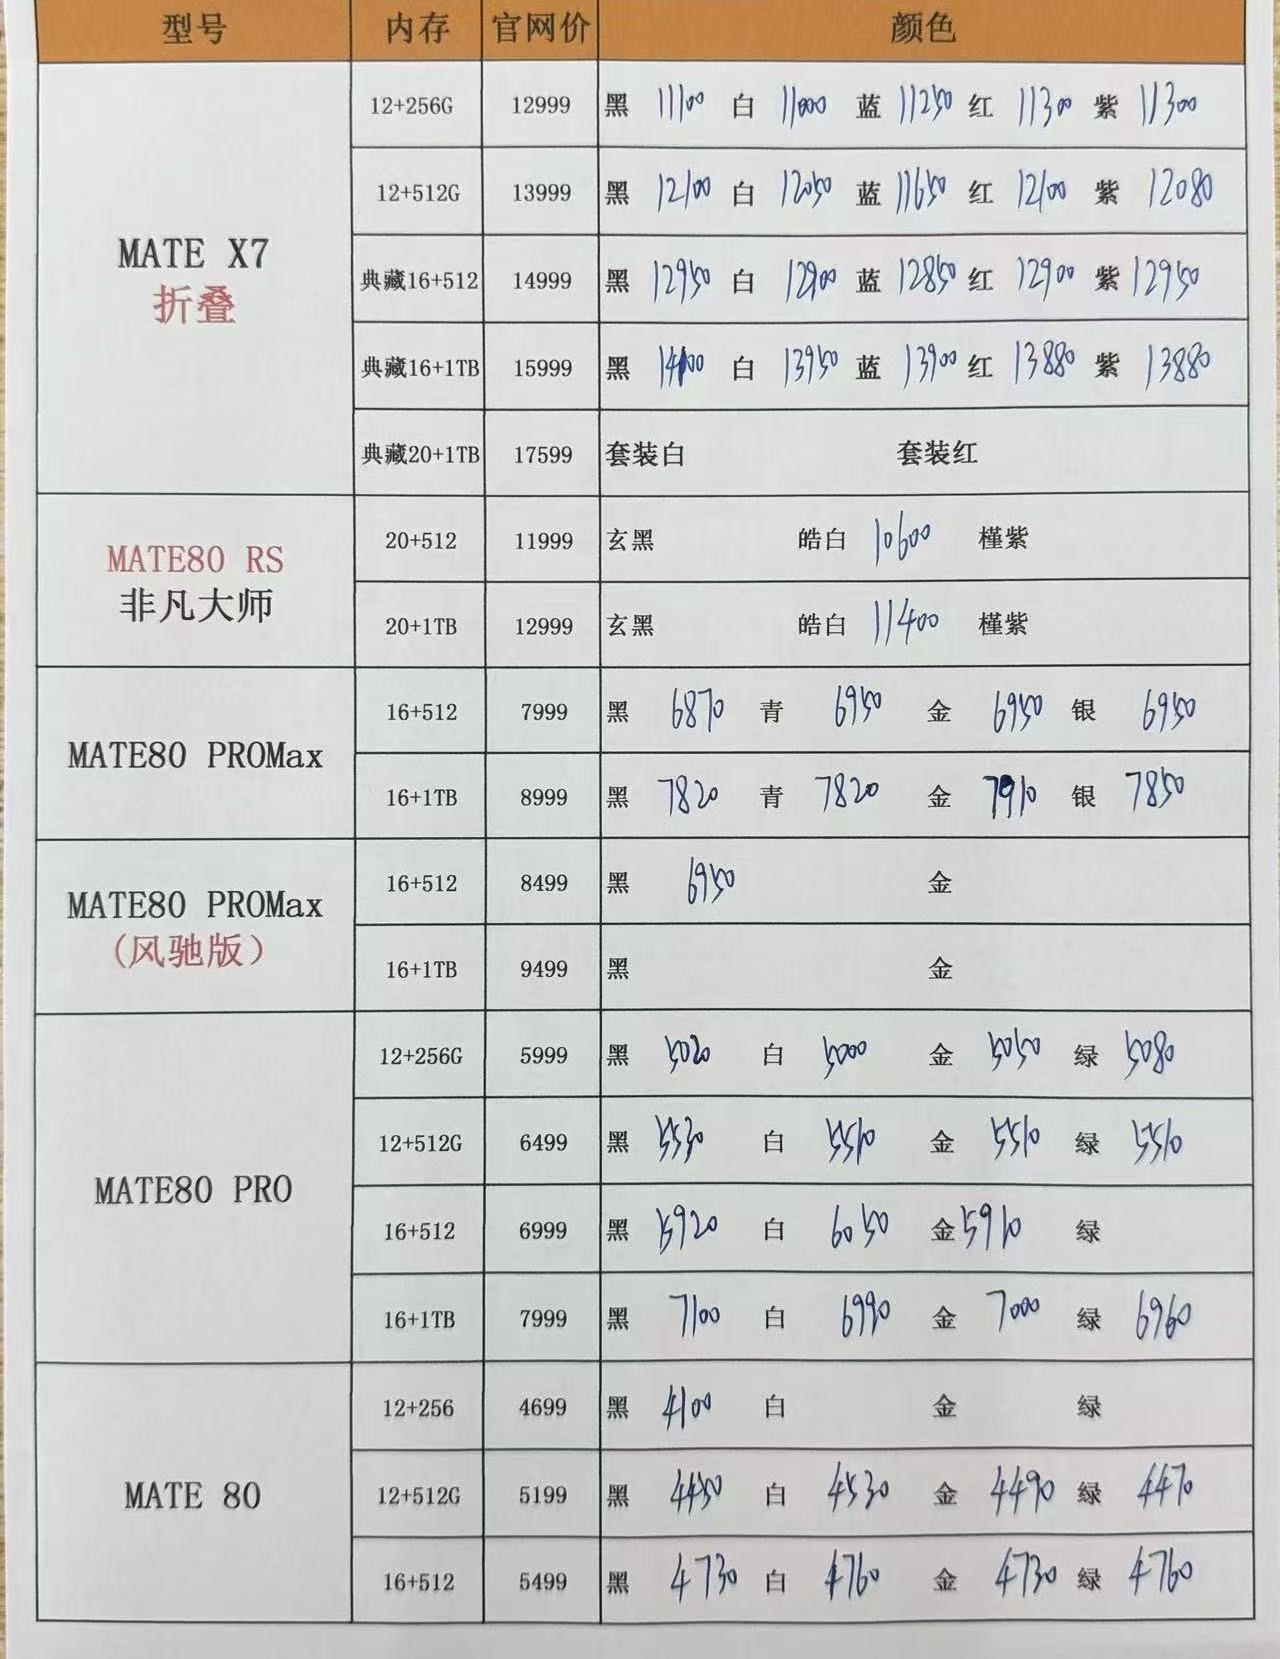 型号 内存 官网价 颜色
MATE X7
折叠
12+256G 12999 黑 11100 白 11000 蓝 11250 红 11300 紫 11300
12+512G 13999 黑 12100 白 12050 蓝 11650 红 12100 紫 12080
典藏16+512 14999 黑 12950 白 12900 蓝 12850 红 12900 紫 12950
典藏16+1TB 15999 黑 白 13950 蓝 13900 红 13880 紫 13880
典藏20+1TB 17599 套装白 套装红
MATE80 RS
非凡大师
20+512 11999 玄黑 皓白 10600 槿紫
20+1TB 12999 玄黑 皓白 11400 槿紫
MATE80 PROMax
16+512 7999 黑 6870 青 6950 金 6950 银 6950
16+1TB 8999 黑 7820 青 7820 金 7910 银 7850
MATE80 PROMax
(风驰版)
16+512 8499 黑 6950 金
16+1TB 9499 黑 金
MATE80 PRO
12+256G 5999 黑 5020 白 5000 金 5050 绿 5080
12+512G 6499 黑 5530 白 5510 金 5510 绿 5510
16+512 6999 黑 5920 白 6050 金 5910 绿
16+1TB 7999 黑 7100 白 6990 金 7000 绿 6960
MATE 80
12+256 4699 黑 4100 白 金 绿
12+512G 5199 黑 4450 白 4530 金 4490 绿 4470
16+512 5499 黑 4730 白 4760 金 4730 绿 4760